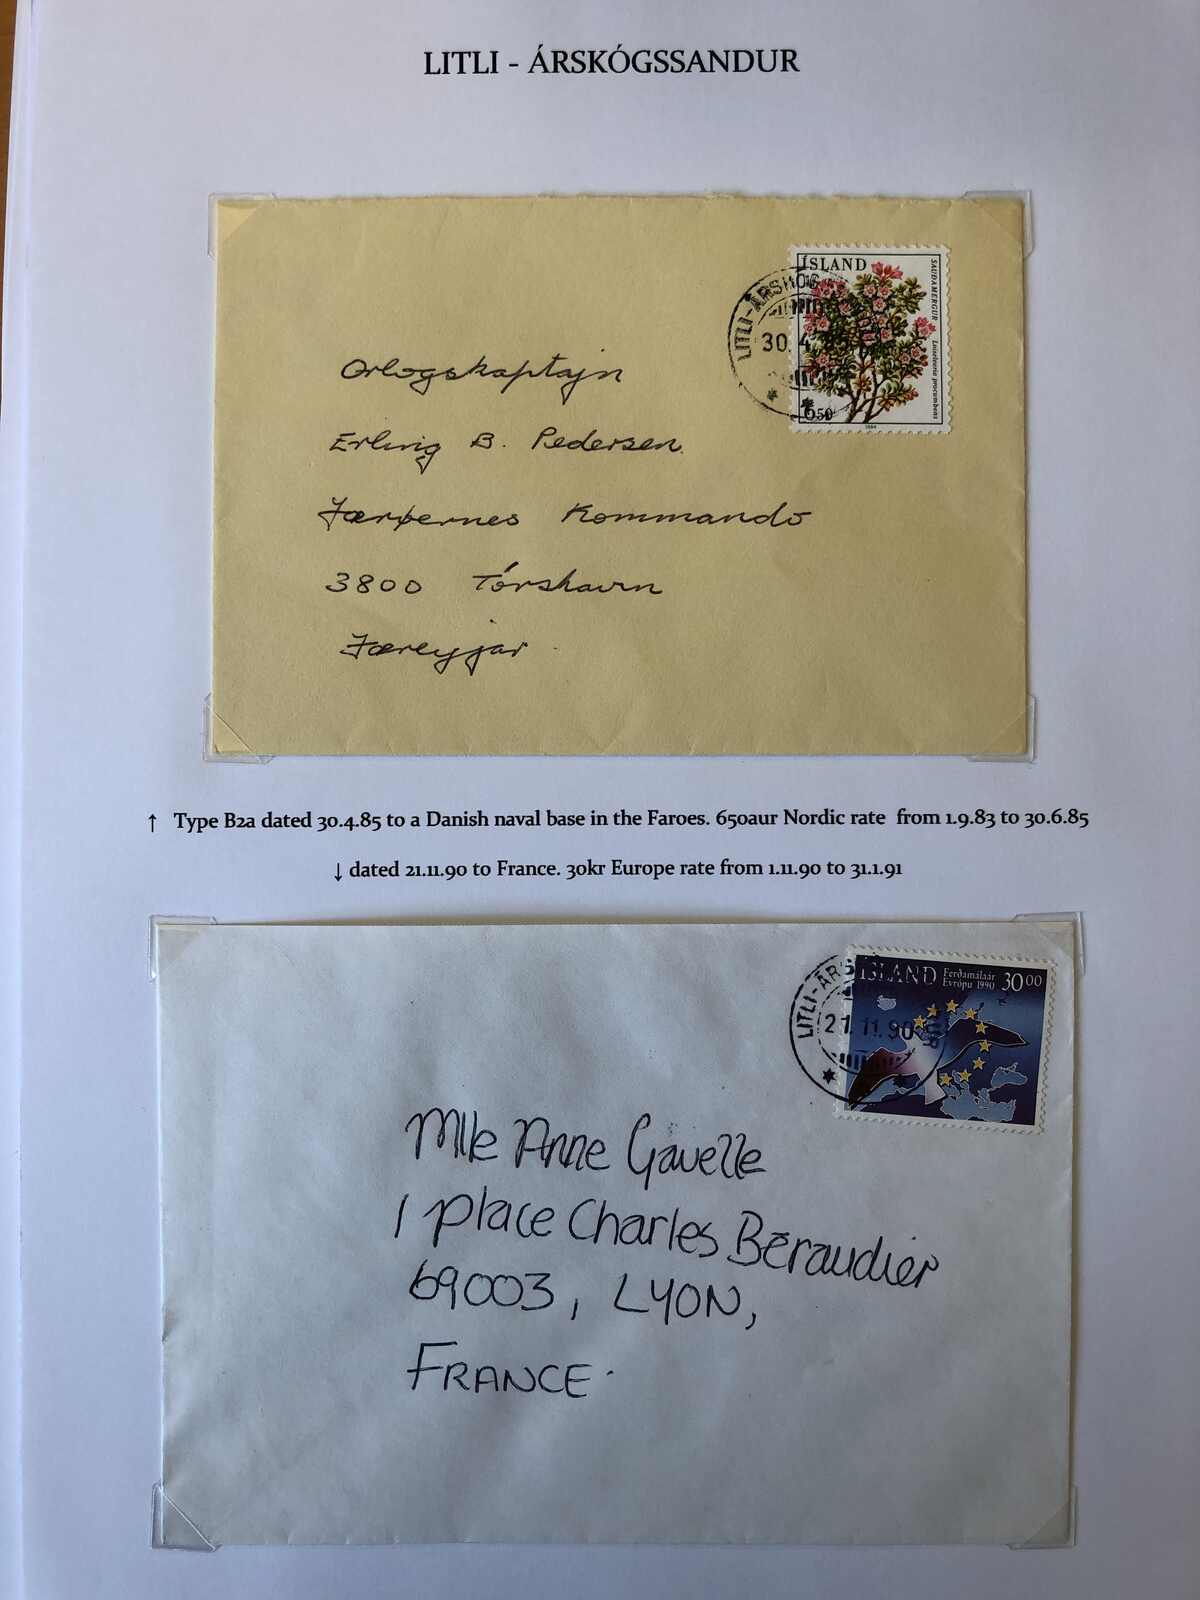 LITLI - ÁRSKÓGSSANDUR
ÍSLAND
SAUÐAMERGUR Loiseleuria procumbens
LITLI-ÁRSKÓG
30.4.85
650
1984
Orlogskaptajn
Erling B. Pedersen
Færøernes Kommando
3800 Tórshavn
Færeyjar
↑ Type B2a dated 30.4.85 to a Danish naval base in the Faroes. 650aur Nordic rate from 1.9.83 to 30.6.85
↓ dated 21.11.90 to France. 30kr Europe rate from 1.11.90 to 31.1.91
ÍSLAND Ferðamálaár Evrópu 1990 3000
LITLI-ÁRS UR
21.11.90
Mlle Anne Gavelle
1 place Charles Béraudier
69003, LYON,
FRANCE.